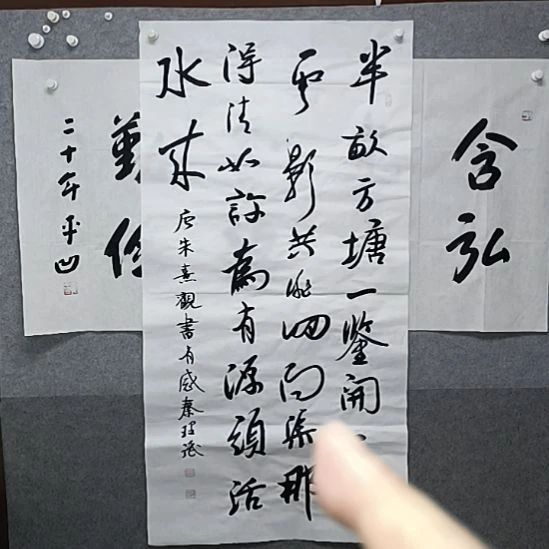 含弘
半畝方塘一鑒開
雲影共徘徊问渠那
得清如許為有源頭活
水来
朱熹觀書有感秦
二十年平凹